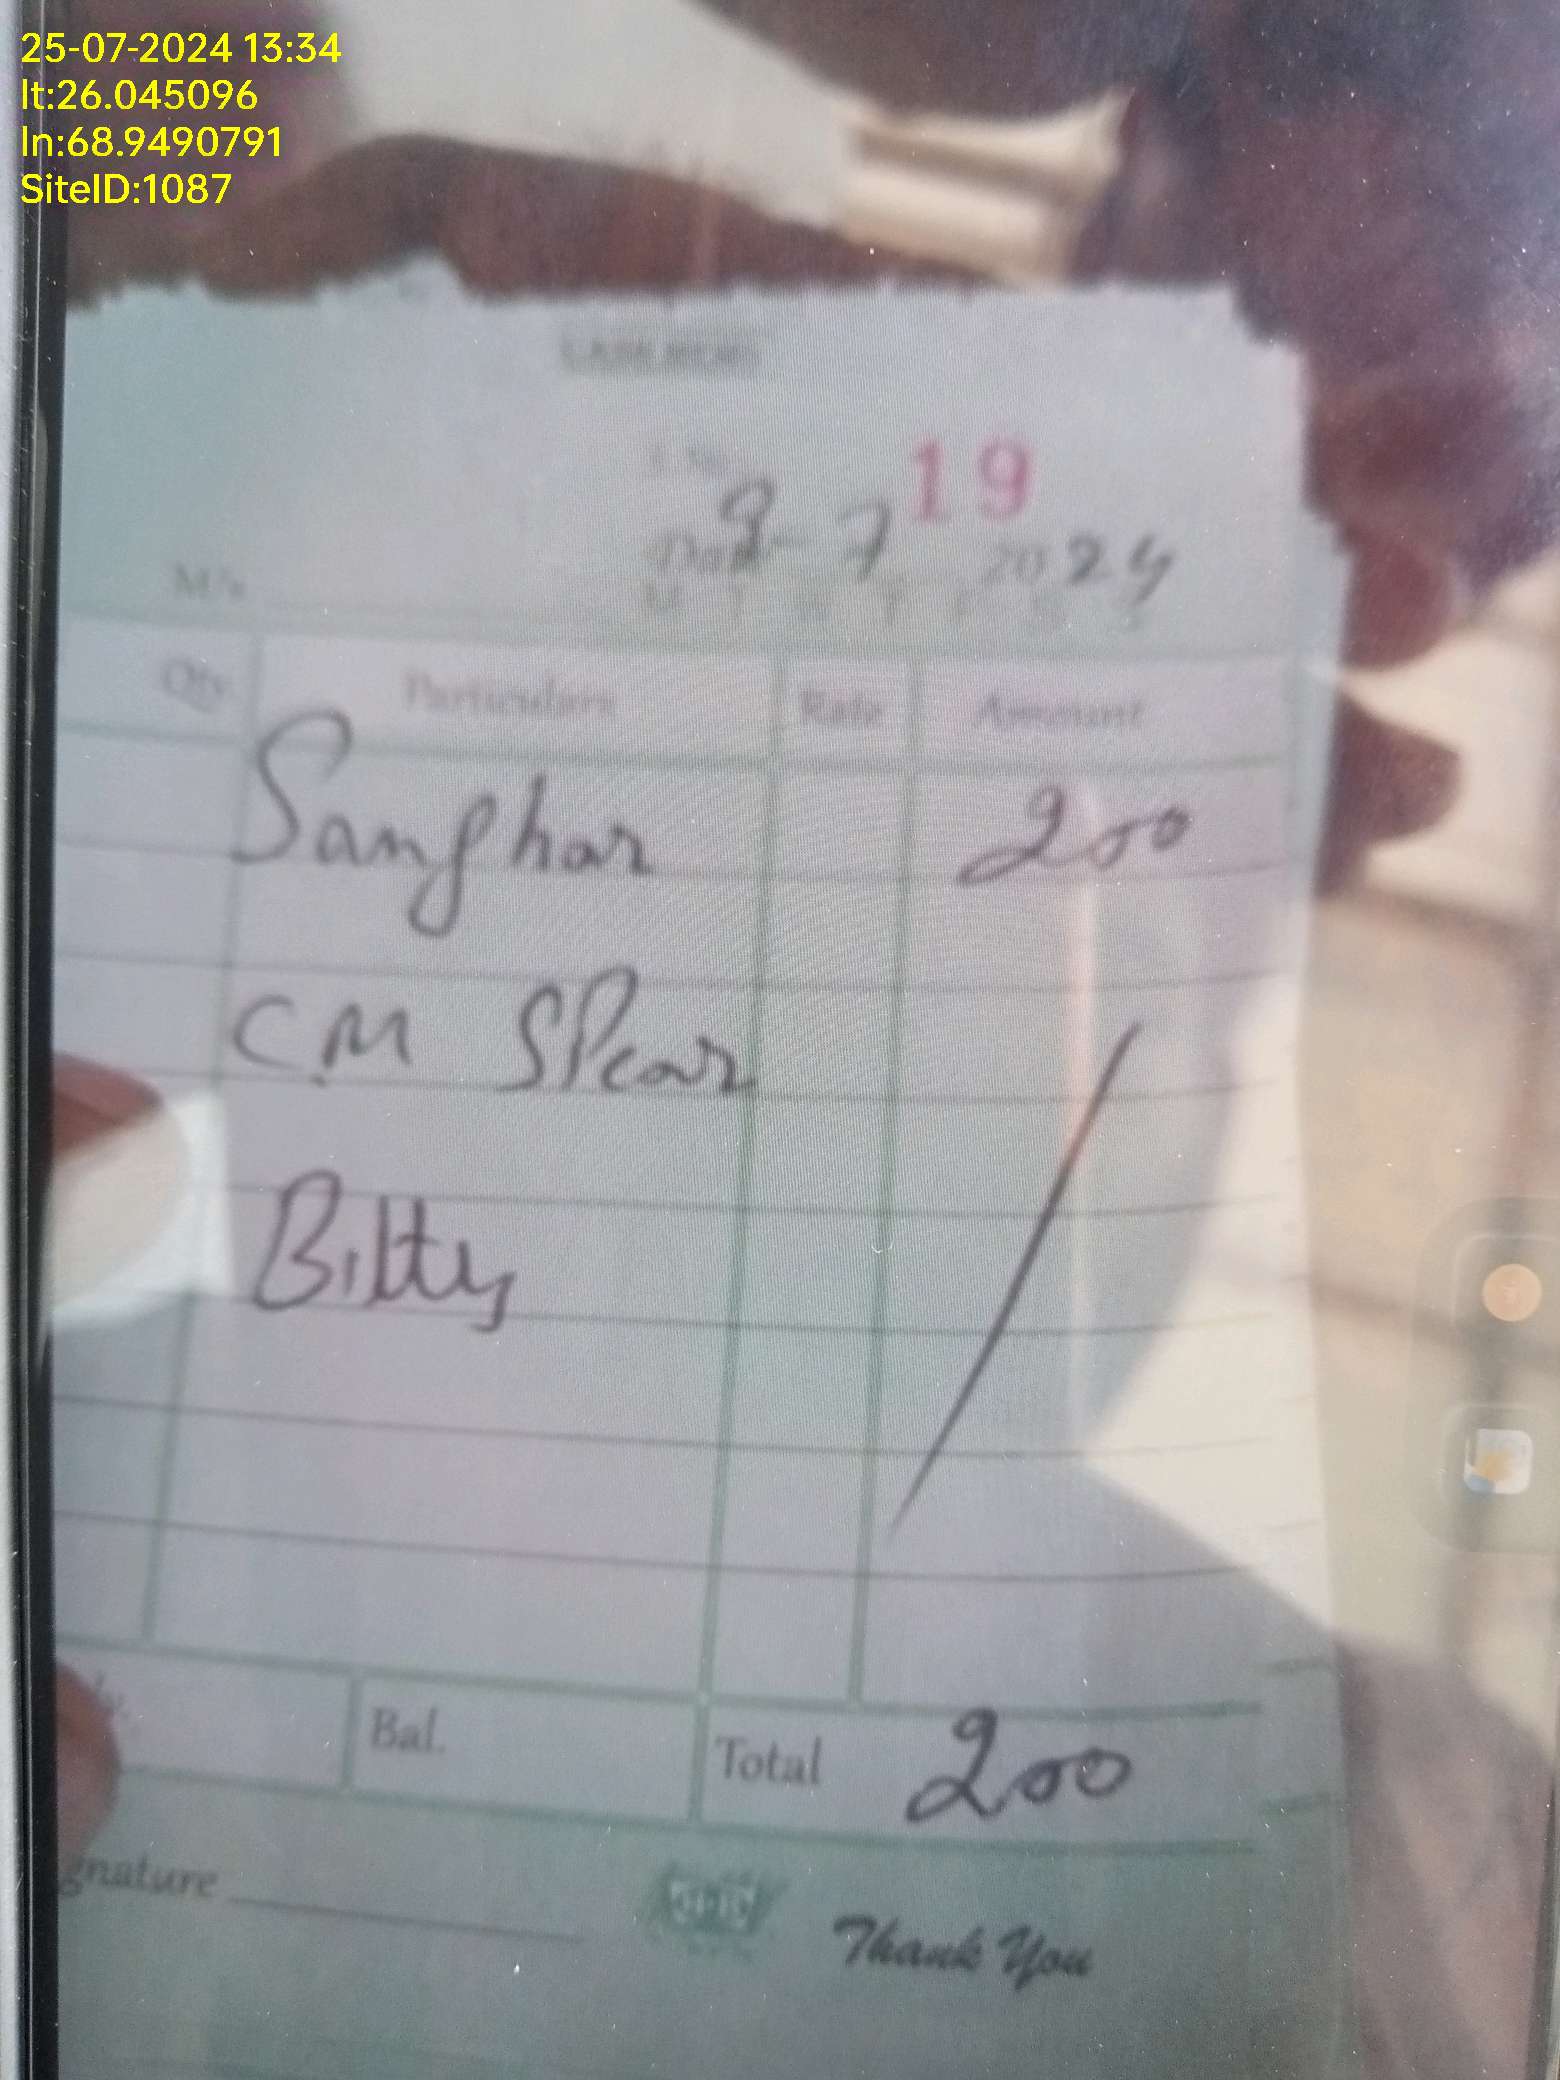 25-07-2024 13:34
lt:26.045096
ln:68.9490791
SiteID:1087
19
Date 9-7 2024
M/s
Qty. Particulars Rate Amount
Sanghar 200
CM SPear
Bilty
Bal. Total 200
gnature
Thank You